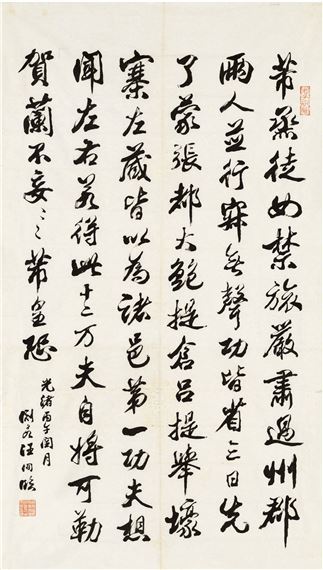 芾蒸徒如禁旅嚴肅過州郡
兩人並行寂無聲功皆省三日先
了蒙張都大鮑提倉呂提舉壕
寨左藏皆以為諸邑第一功夫想
聞左右若得此十二万夫自將可勒
賀蘭不妄〻〻芾皇恐
光緒丙午閏月
淵若汪洵臨